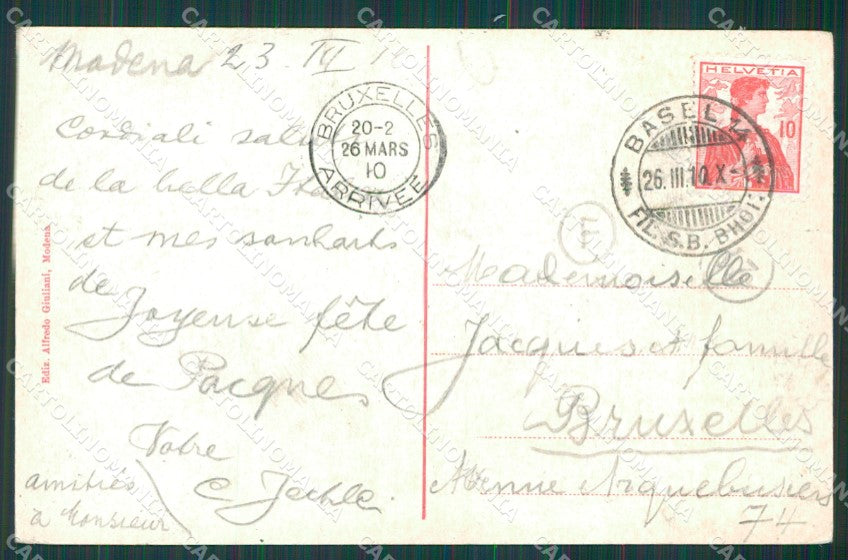 Modena 23 III
Cordiali saluti
de la bella Italia
et mes souhaits
de
Joyeuse fête
de Pacques
Votre
amitiés
à Monsieur
Ediz. Alfredo Giuliani, Modena
BRUXELLES
20-2
26 MARS
10
ARRIVÉE
HELVETIA
10
BASEL 14
26.III.10.X-
FIL. S.B. BHOF.
Mademoiselle
Jacques et famille
Bruxelles
Avenue Arquebusiers
74
CARTOLINOMANIA